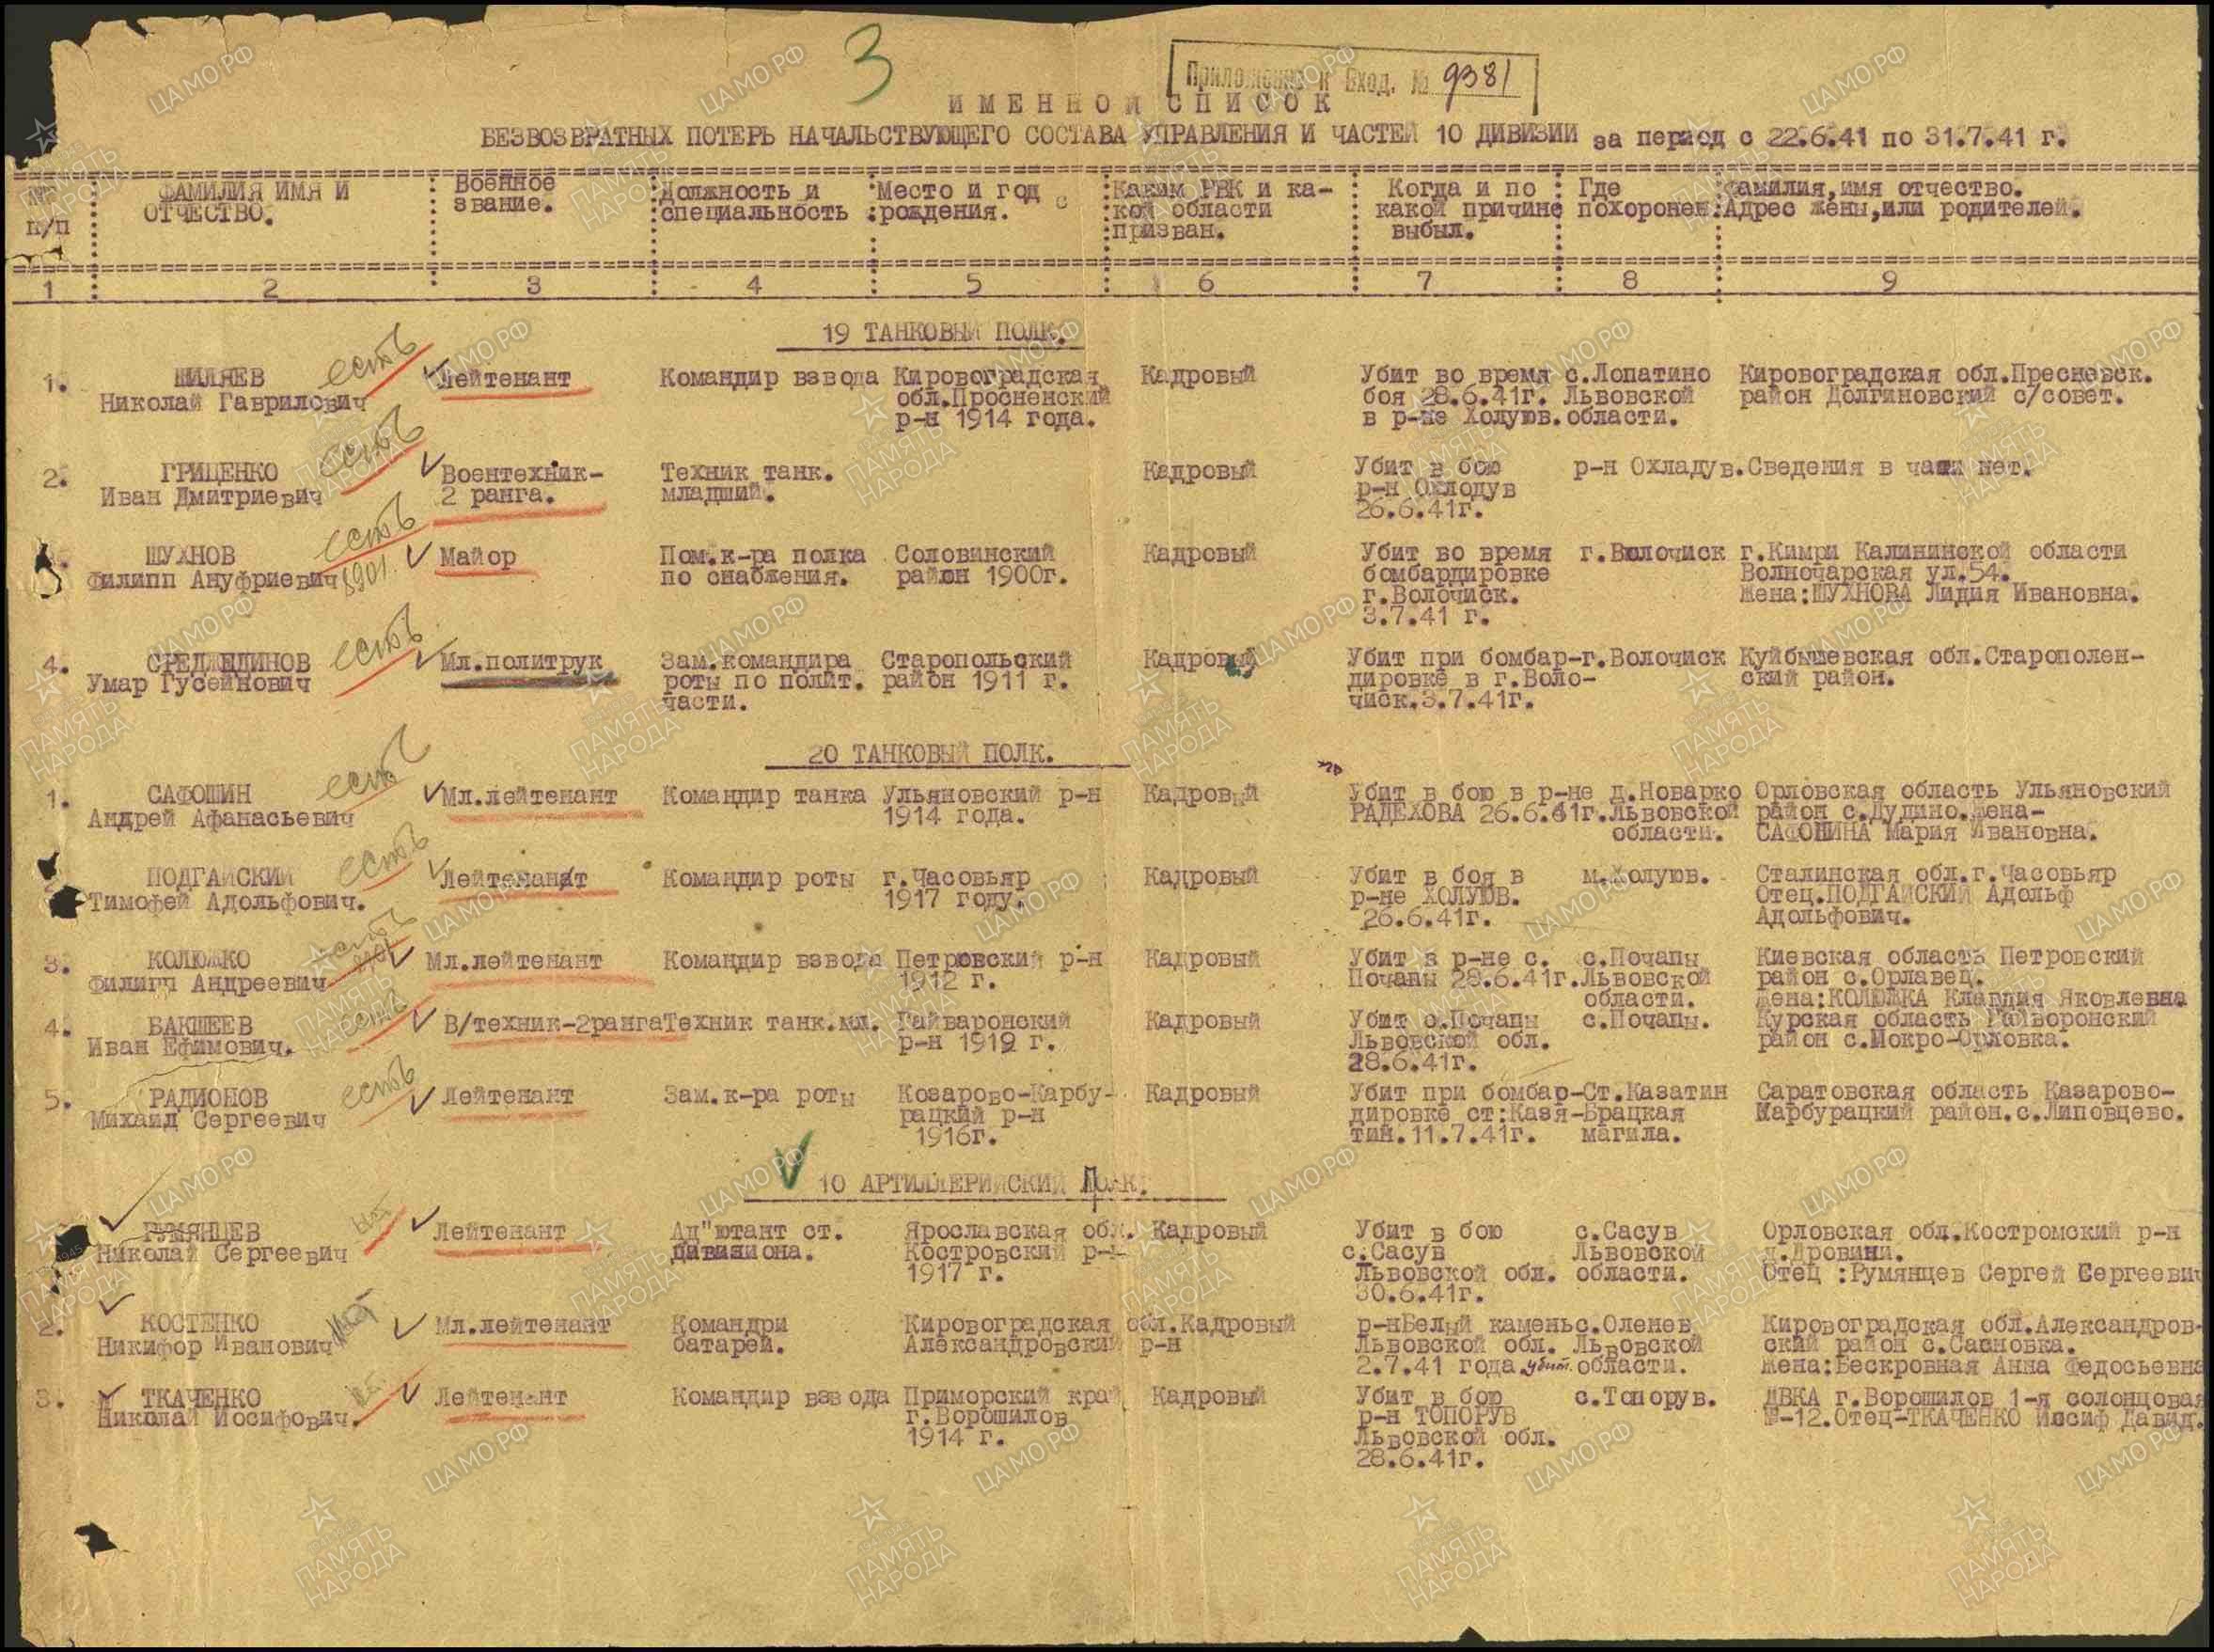 3
Приложение к Вход. № 9381
ИМЕННОЙ СПИСОК
БЕЗВОЗВРАТНЫХ ПОТЕРЬ НАЧАЛЬСТВУЮЩЕГО СОСТАВА УПРАВЛЕНИЯ И ЧАСТЕЙ 10 ДИВИЗИИ за период с 22.6.41 по 31.7.41 г.
№№ п/п
ФАМИЛИЯ ИМЯ И
ОТЧЕСТВО.
Военное
звание.
Должность и
специальность
Место и год
рождения.
Каким РВК и ка-
кой области
призван.
Когда и по
какой причине
выбыл.
Где
похоронен.
Фамилия,имя отчество.
Адрес жены,или родителей.
1 2 3 4 5 6 7 8 9
19 ТАНКОВЫЙ ПОЛК.
1. ШИЛЯЕВ
Николай Гаврилович
есть
Лейтенант
Командир взвода
Кировоградская
обл.Просненский
р-н 1914 года.
Кадровый
Убит во время
боя 28.6.41г.
в р-не Холуюв.
с.Лопатино
Львовской
области.
Кировоградская обл.Пресневск.
район Долгиновский с/совет.
2. ГРИЦЕНКО
Иван Дмитриевич
есть
Воентехник-
2 ранга.
Техник танк.
младший.
Кадровый
Убит в бою
р-н Охлодув
26.6.41г.
р-н Охладув.
Сведения в части нет.
ШУХНОВ
Филипп Ануфриевич
есть
Майор
Пом.к-ра полка
по снабжения.
Соловинский
район 1900г.
Кадровый
Убит во время
бомбардировке
г.Волочиск.
3.7.41 г.
г.Волочиск
г.Кимри Калининской области
Волночарская ул.54.
Жена:ШУХНОВА Лидия Ивановна.
4. СРЕДЖЕДИНОВ
Умар Гусейнович
есть
Мл.политрук
Зам.командира
роты по полит.
части.
Старопольский
район 1911 г.
Кадровый
Убит при бомбар-
дировке в г.Воло-
чиск.3.7.41г.
г.Волочиск
Куйбышевская обл.Старополен-
ский район.
20 ТАНКОВЫЙ ПОЛК.
1. САФОШИН
Андрей Афанасьевич
есть
Мл.лейтенант
Командир танка
Ульяновский р-н
1914 года.
Кадровый
Убит в бою в р-не
РАДЕХОВА 26.6.41г.
д.Новарко
Львовской
области.
Орловская область Ульяновский
район с.Дудино.Жена-
САФОШИНА Мария Ивановна.
ПОДГАЙСКИЙ
Тимофей Адольфович.
есть
Лейтенант
Командир роты
г.Часовьяр
1917 году.
Кадровый
Убит в боя в
р-не ХОЛУЮВ.
26.6.41г.
м.Холуюв.
Сталинская обл.г.Часовьяр
Отец.ПОДГАЙСКИЙ Адольф
Адольфович.
3. КОЛЮЖКО
Филипп Андреевич
есть
Мл.лейтенант
Командир взвода
Петровский р-н
1912 г.
Кадровый
Убит в р-не с.
Почапы 28.6.41г.
с.Почапы
Львовской
области.
Киевская область Петровский
район с.Орлавец.
Жена:КОЛЮЖКА Клавдия Яковлевна
4. БАКШЕЕВ
Иван Ефимович.
есть
В/техник-2ранга
Техник танк.мл.
Гайваронский
р-н 1919 г.
Кадровый
Убит с.Почапы
Львовской обл.
28.6.41г.
с.Почапы.
Курская область Гайворонский
район с.Мокро-Орловка.
5. РАДИОНОВ
Михаил Сергеевич
есть
Лейтенант
Зам.к-ра роты
Козарово-Карбу-
рацкий р-н
1916г.
Кадровый
Убит при бомбар-
дировке ст:Казя-
тин.11.7.41г.
Ст.Казатин
Брацкая
магила.
Саратовская область Казарово-
Карбурацкий район.с.Липовцево.
10 АРТИЛЛЕРИЙСКИЙ ПОЛК.
РУМЯНЦЕВ
Николай Сергеевич
Лейтенант
Ад"ютант ст.
дивизиона.
Ярославская обл.
Костровский р-н
1917 г.
Кадровый
Убит в бою
с.Сасув
Львовской обл.
30.6.41г.
с.Сасув
Львовской
области.
Орловская обл.Костромский р-н
д.Дровини.
Отец :Румянцев Сергей Сергеевич
2. КОСТЕНКО
Никифор Иванович
Мл.лейтенант
Командри
батарей.
Кировоградская обл.
Александровский р-н
Кадровый
р-нБелый камень
Львовской обл.
2.7.41 года убит.
с.Оленев
Львовской
области.
Кировоградская обл.Александров-
ский район с.Сасновка.
Жена:Бескровная Анна Федосьевна
3. ТКАЧЕНКО
Николай Иосифович.
Лейтенант
Командир взвода
Приморский край
г.Ворошилов
1914 г.
Кадровый
Убит в бою
р-н ТОПОРУВ
Львовской обл.
28.6.41г.
с.Топорув.
ДВКА г.Ворошилов 1-я солонцовая
№-12.Отец-ТКАЧЕНКО Иосиф Давид.
ЦАМО РФ
ПАМЯТЬ НАРОДА